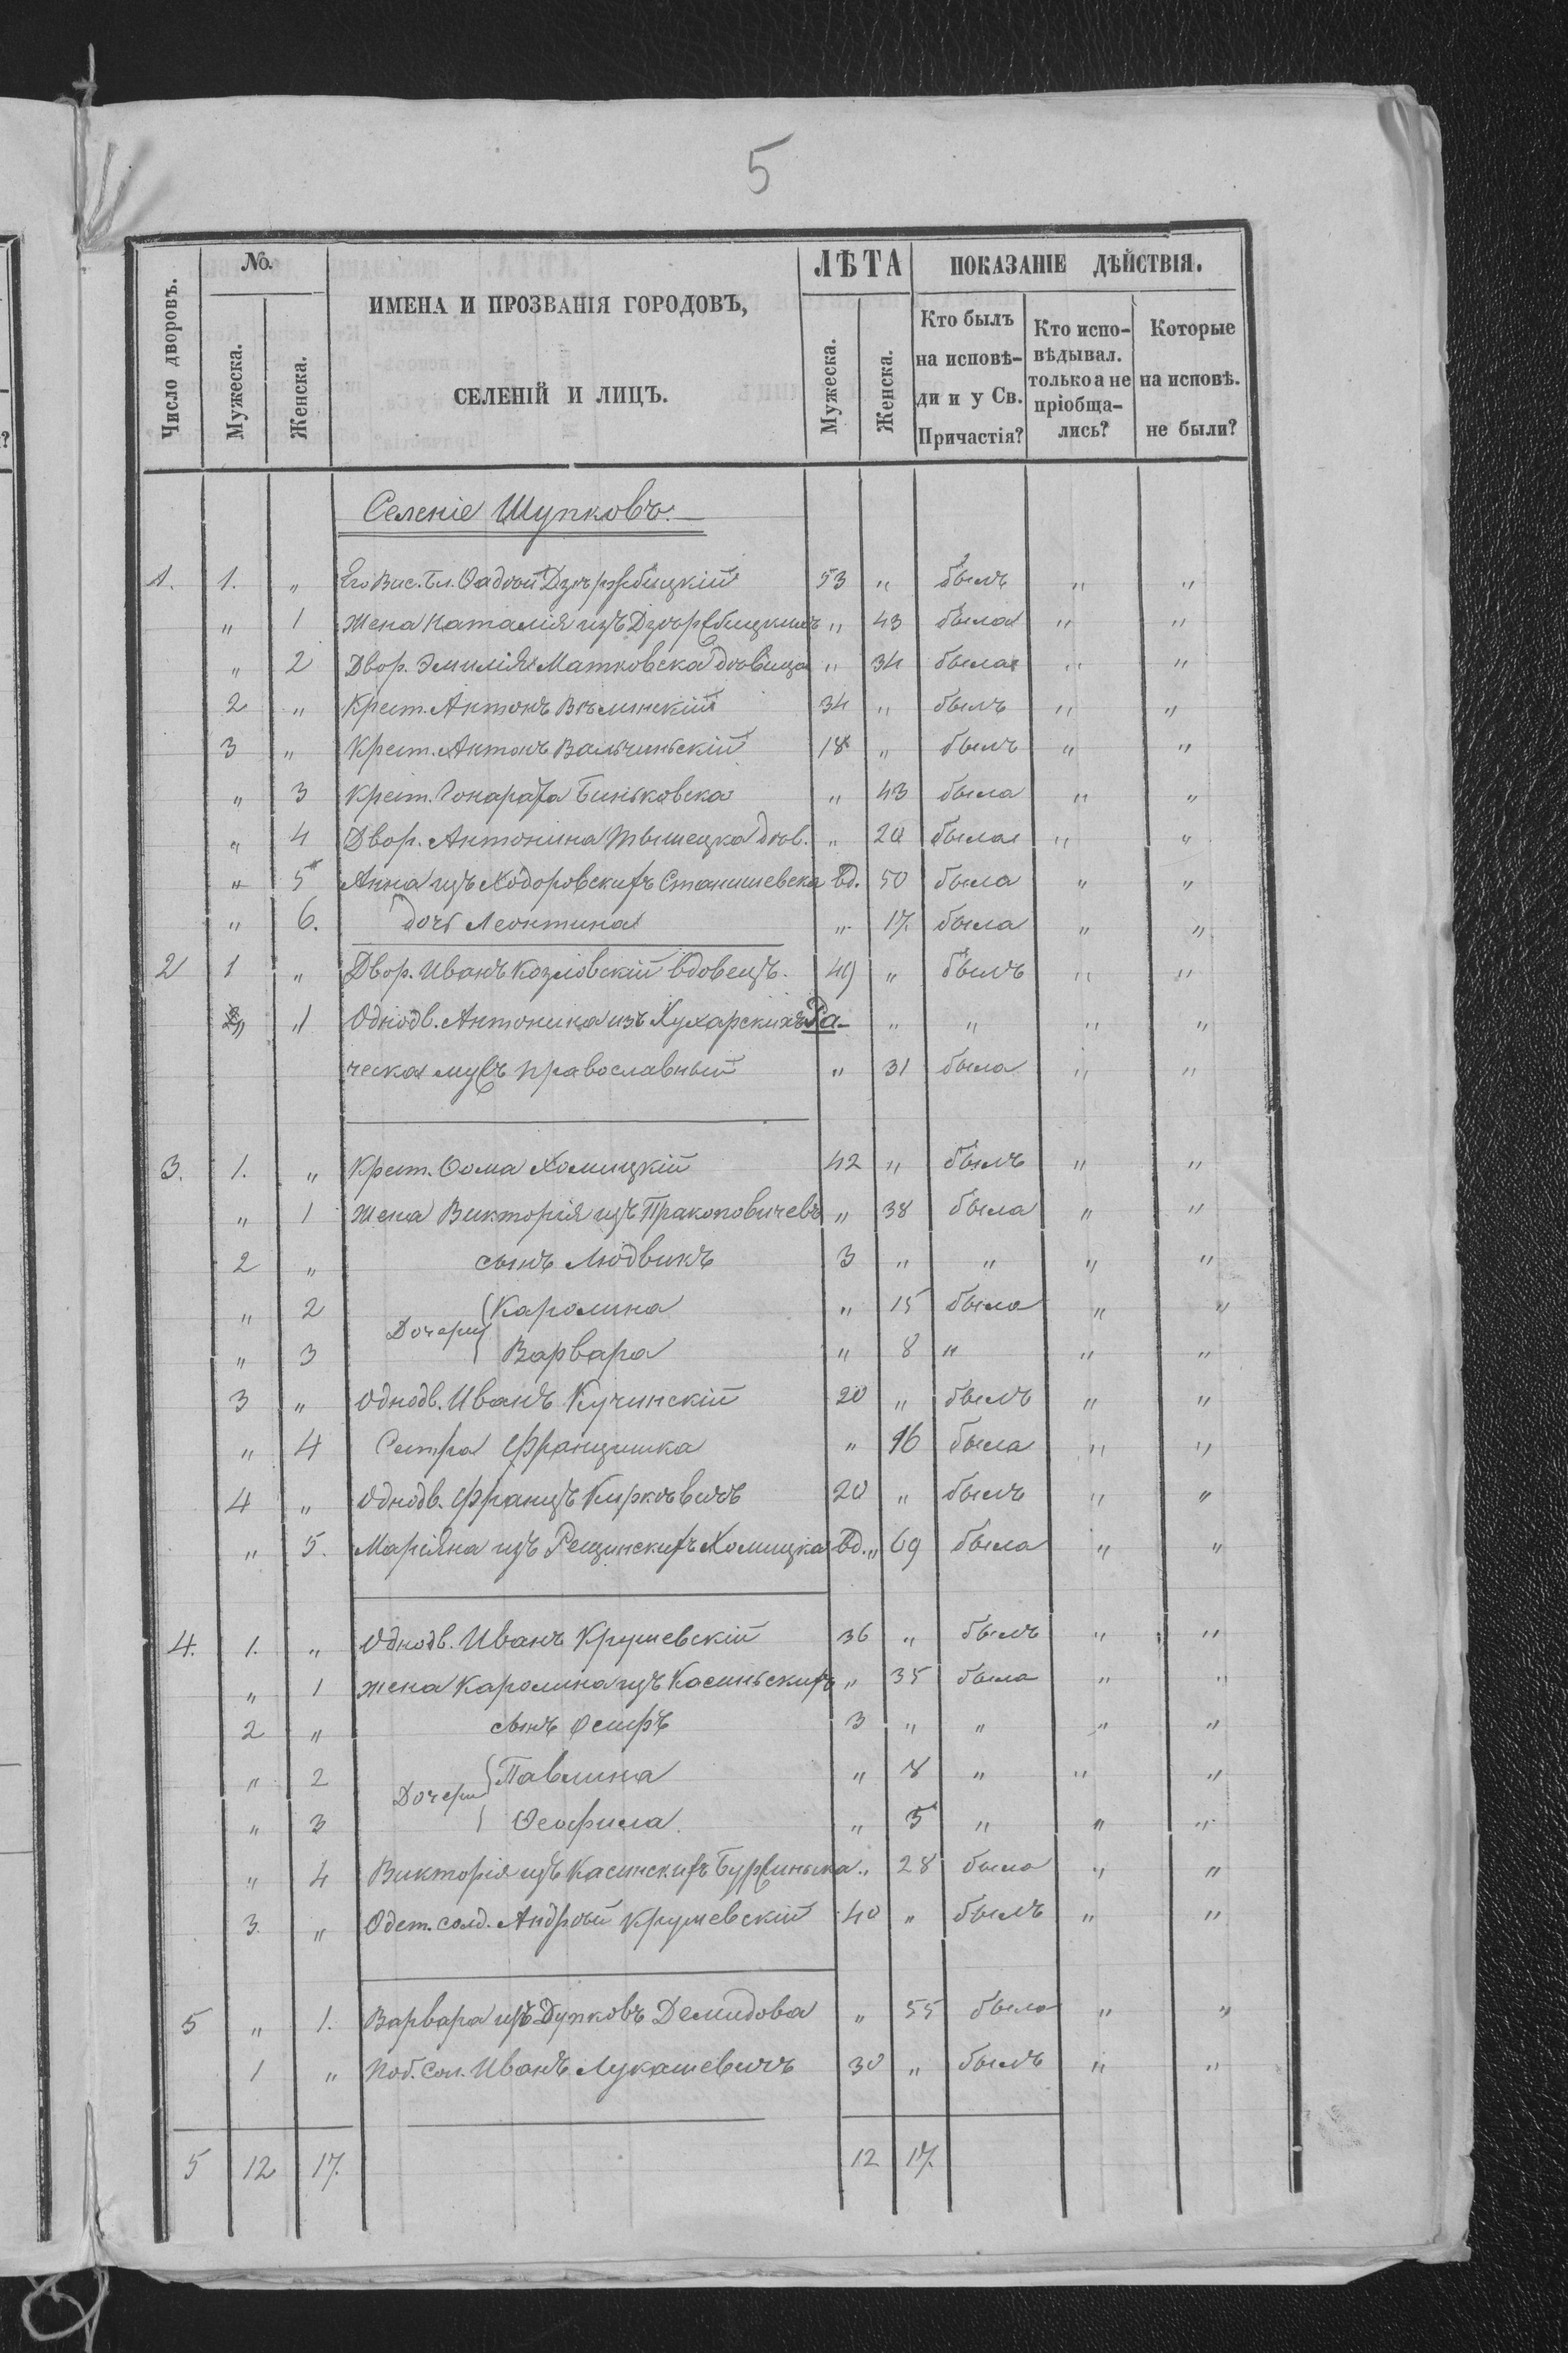 5
Число дворовъ. | №. | ИМЕНА И ПРОЗВАНІЯ ГОРОДОВЪ, СЕЛЕНІЙ И ЛИЦЪ. | ЛѢТА | ПОКАЗАНІЕ ДѢЙСТВІЯ.
Мужеска. | Женска. | Мужеска. | Женска. | Кто былъ на исповѣди и у Св. Причастія? | Кто исповѣдывал. только а не пріобщались? | Которые на исповѣ. не были?
Селеніе Шупковъ.
1. 1. " Его Выс. Бл. Фадѣй Дзержбицкій 53 " былъ " "
" 1 Жена Наталія изъ Дзержбицкихъ " 43 была " "
" 2 Двор. Эмилія Матковска дѣвица " 34 была " "
2 " Крест. Антонъ 34 " былъ " "
3 " Крест. Антонъ Вальчинскій 18 " былъ " "
" 3 Крест. Гонарата Биньковска " 43 была " "
" 4 Двор. Антонина Тышецка дѣв. " 20 была " "
" 5 Анна изъ Ходоровскихъ Станишевска вд. 50 была " "
" 6. дочь Леонтина " 17. была " "
2 1 " Двор. Иванъ Козловскій вдовецъ. 49 " былъ " "
" 1 Однодв. Антонина изъ Кухарскихъ Ра- " " " "
ческа мужъ православный " 31 была " "
3. 1. " Крест. Ѳома Хомицкій 42 " былъ " "
" 1 Жена Викторія изъ Пракоповичевъ " 38 была " "
2 " сынъ Людвикъ 3 " " " "
" 2 Дочери { Каролина " 15 была " "
" 3 Варвара " 8 " " "
3 " Однодв. Иванъ Кучинскій 20 " былъ " "
" 4 Сестра Францишка " 16 была " "
4 " Однодв. Францъ Киркевичъ 20 " былъ " "
" 5. Маріяна изъ Рещинскихъ Хомицка вд. " 69 была " "
4. 1. " Однодв. Иванъ Крушевскій 36 " былъ " "
" 1 жена Каролина изъ Касиньскихъ " 35 была " "
2 " сынъ Осипъ 3 " " " "
" 2 Дочери { Павлина " 8 " " "
" 3 Ѳеофила. " 5 " " "
" 4 Викторія изъ Касинскихъ Буржиньска " 28 была " "
3 " Одст. солд. Андрѣй Крушевскій 40 " былъ " "
5 " 1. Варвара изъ Дупковъ Демидова " 55 была " "
1 " Иванъ Лукашевичъ 30 " былъ " "
5 12 17. 12 17.